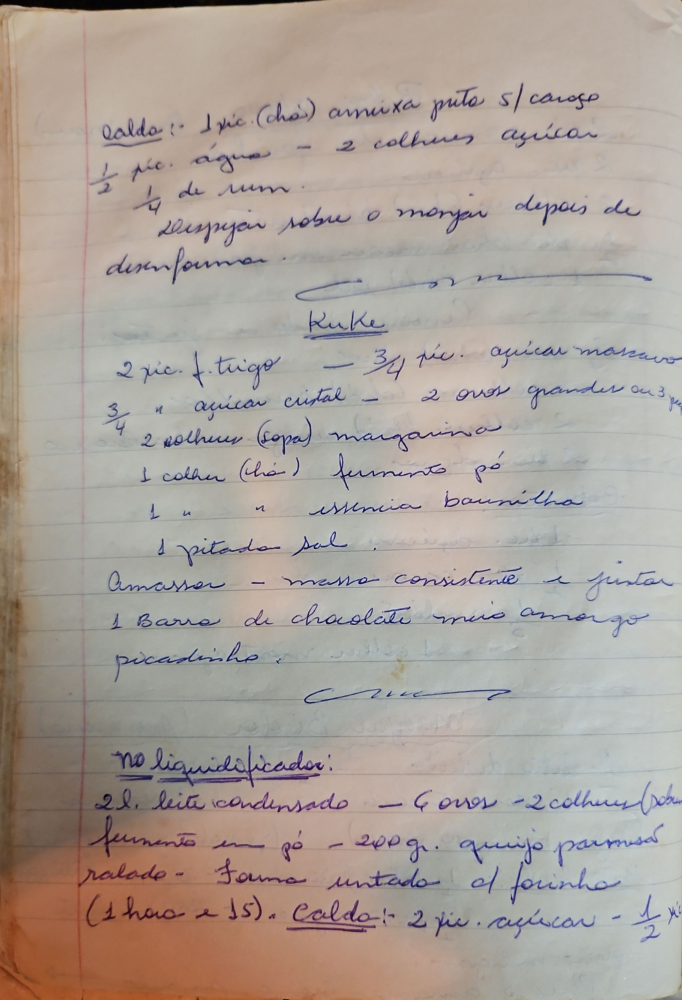 Calda:- 1 xic. (chá) ameixa preta s/ caroço
1/2 xic. água - 2 colheres açúcar
1/4 de rum.
Despejar sobre o manjar depois de
desenformar.
KuKe
2 xic. f. trigo - 3/4 xic. açúcar mascavo
3/4 " açúcar cristal - 2 ovos grandes ou 3
2 colheres (sopa) margarina
1 colher (chá) fermento pó
1 " " essencia baunilha
1 pitada sal.
Amassar - massa consistente e juntar
1 Barra de chocolate meio amargo
picadinho.
no liquidificador:
2 l. leite condensado - 6 ovos - 2 colheres (sobr
fermento em pó - 200 gr. queijo parmesã
ralado - Forma untada c/ farinha
(1 hora e 15). Calda:- 2 xic. açúcar - 1/2 xi